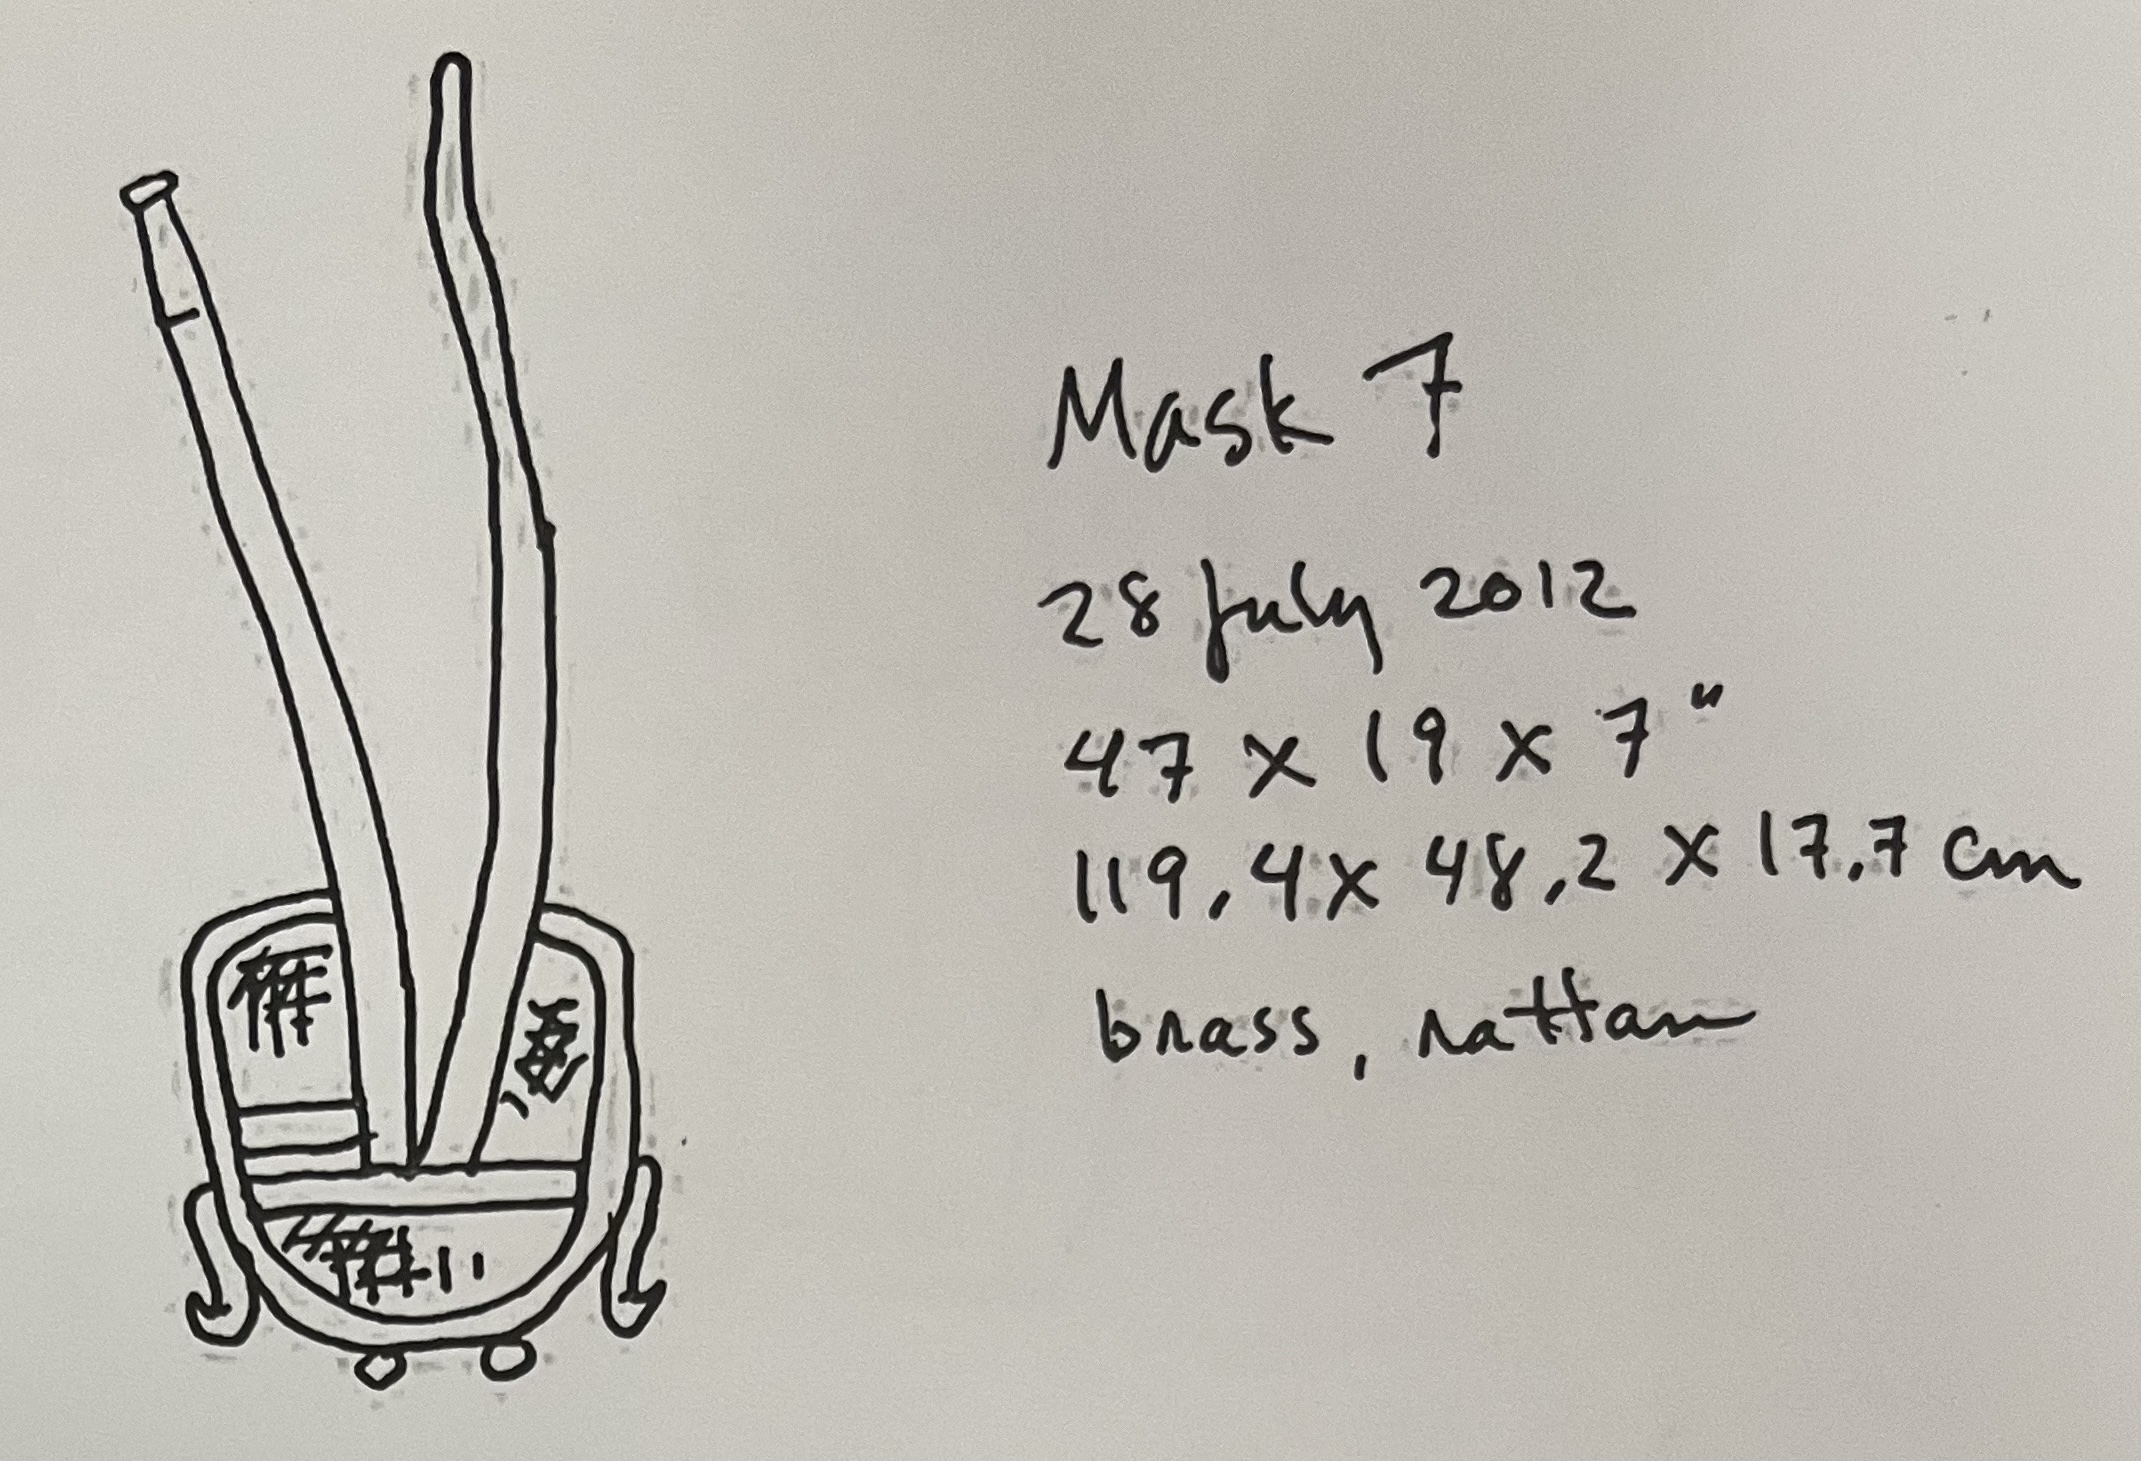 Mask 7
28 July 2012
47 x 19 x 7"
119,4 x 48,2 x 17,7 cm
brass, rattan